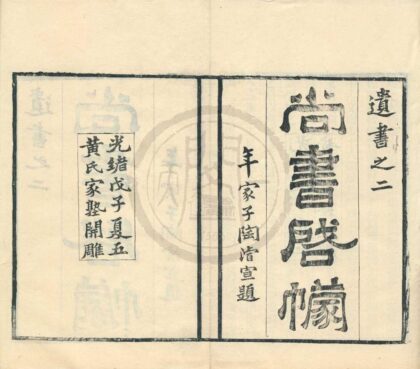 遺書之二
尚書啓幪
年家子陶濬宣題
光緒戊子夏五
黃氏家塾開雕